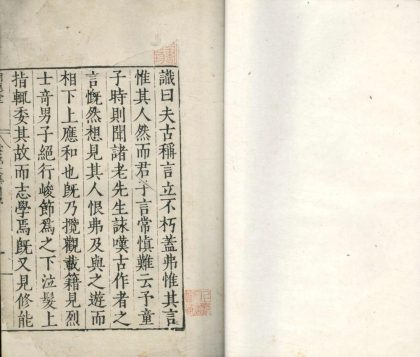 識曰夫古稱言立不朽蓋弗惟其言
惟其人然而君子言常慎難云予童
子時則聞諸老先生詠嘆古作者之
言慨然想見其人恨弗及與之遊而
相下上應和也既乃攬觀載籍見烈
士奇男子絕行峻節為之下泣髮上
指輒委其故而志學焉既又見修能